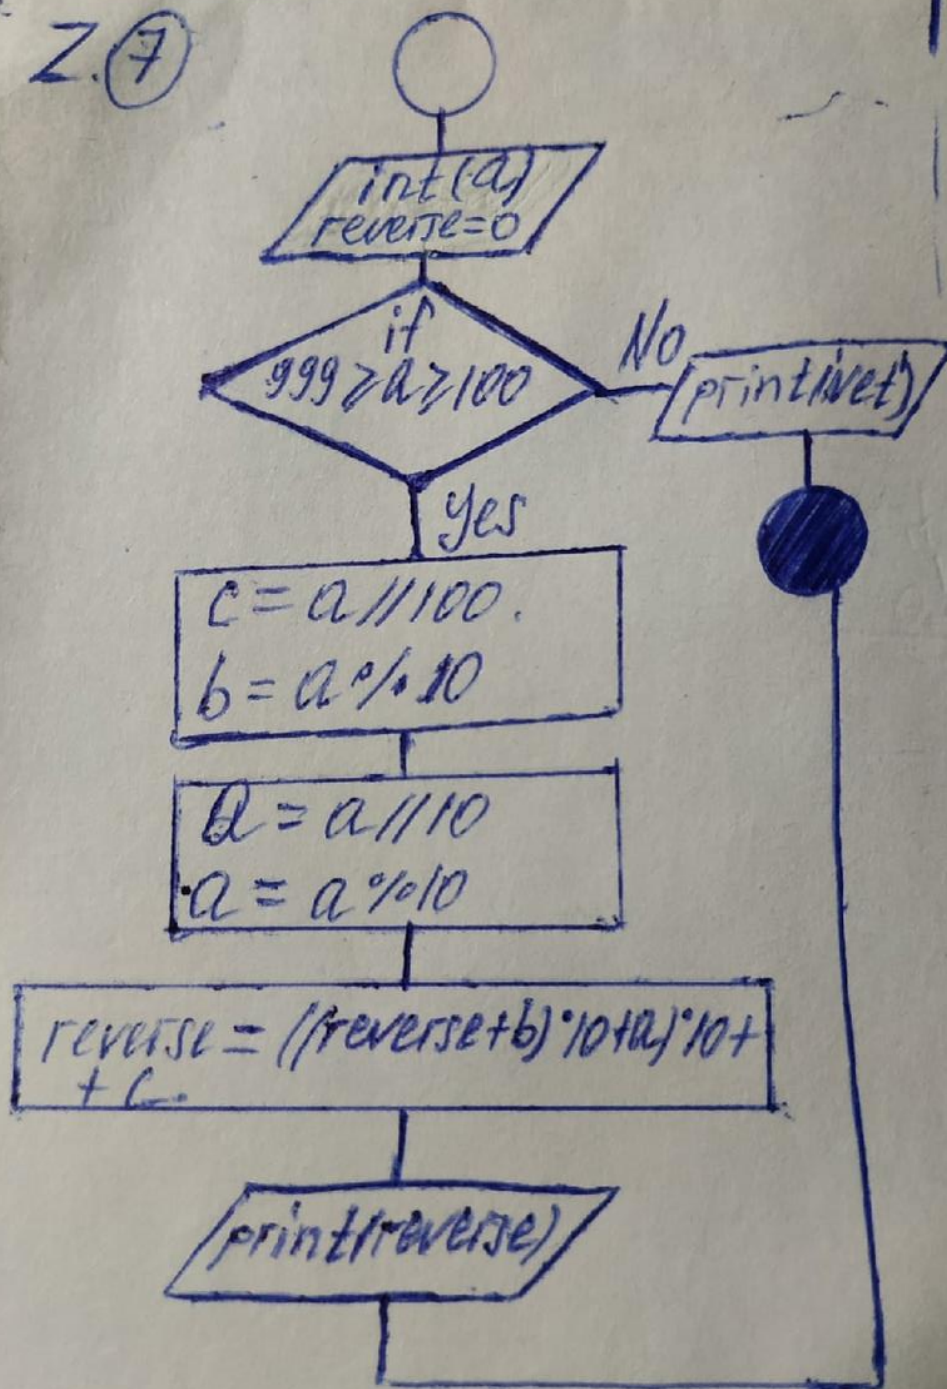 Z. 7
int(a)
reverse=0
if
999⩾a⩾100
No
print(Net)
yes
c = a//100.
b = a%10
a = a//10
a = a%10
reverse = ((reverse+b)*10+a)*10+
+ c.
print(reverse)